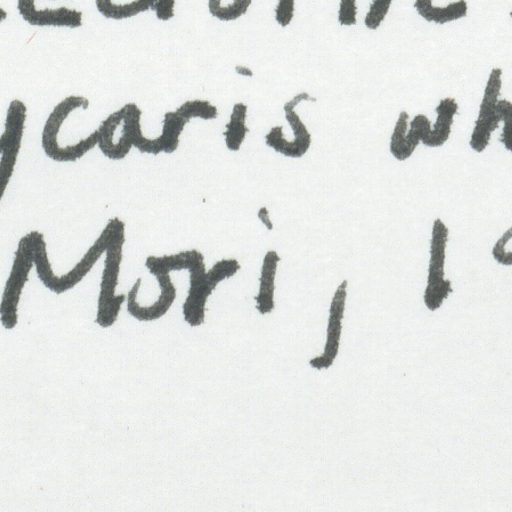 ycaris wh
Mori, 19